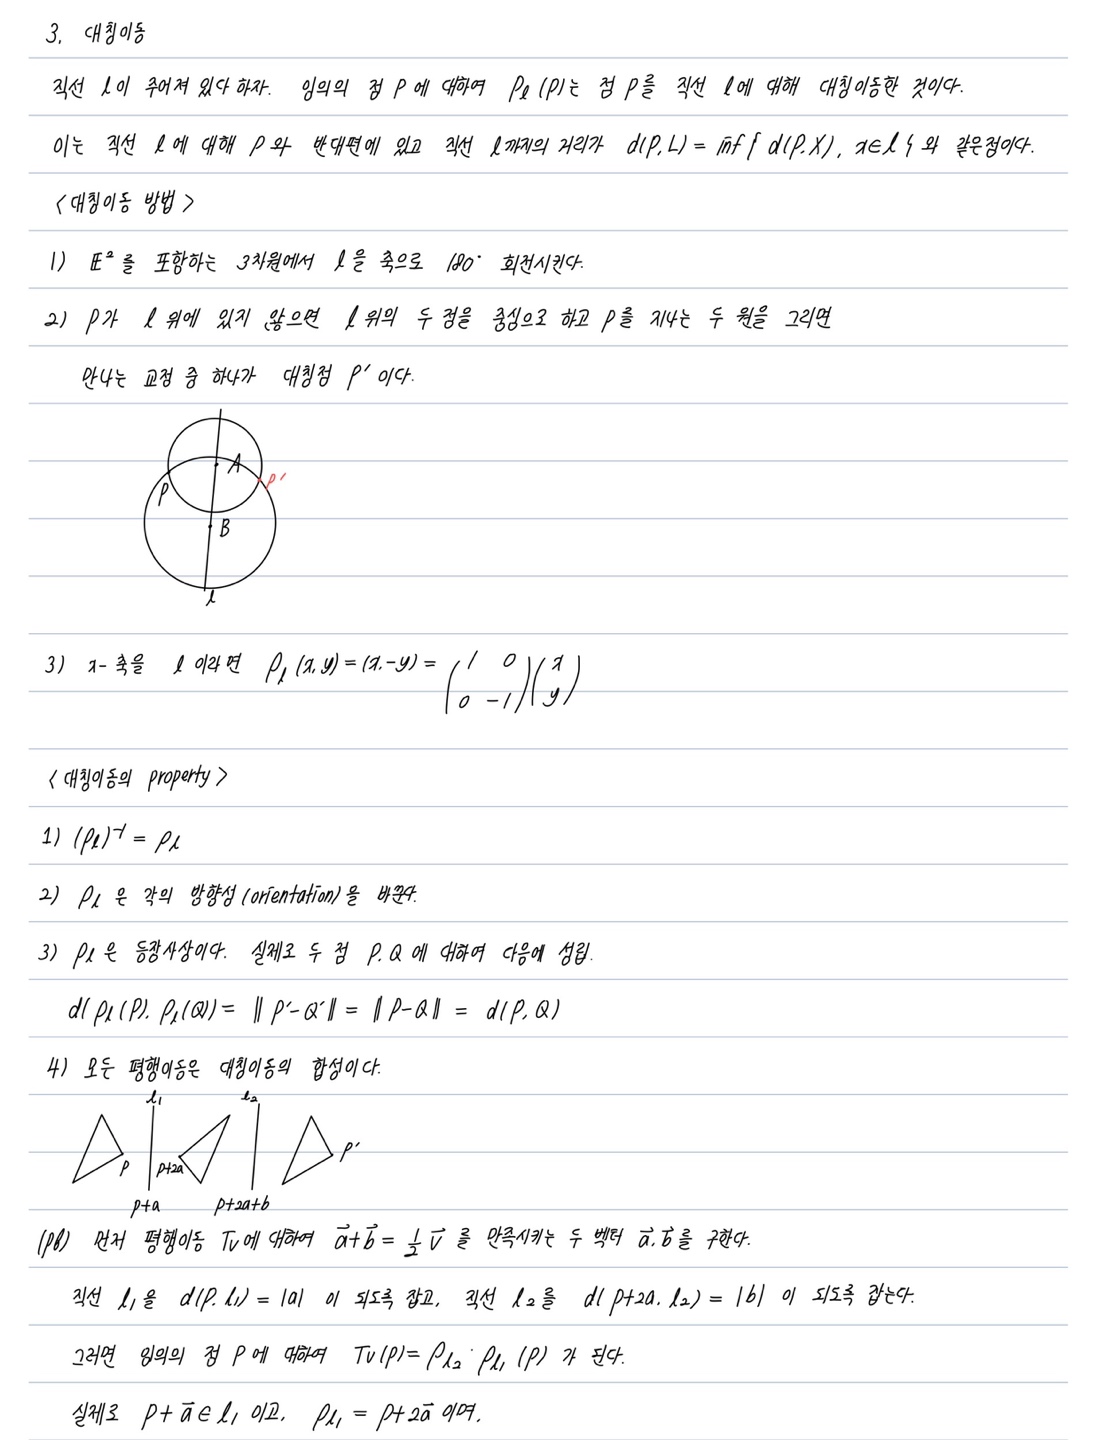 3. 대칭이동
직선 l이 주어져 있다 하자. 임의의 점 P에 대하여 ρₗ(P)는 점 P를 직선 l에 대해 대칭이동한 것이다.
이는 직선 l에 대해 P와 반대편에 있고 직선 l까지의 거리가 d(P, L) = inf { d(P, X), x∈l } 와 같은점이다.
<대칭이동 방법>
1) 𝔼²를 포함하는 3차원에서 l을 축으로 180° 회전시킨다.
2) P가 l 위에 있지 않으면 l 위의 두 점을 중심으로 하고 P를 지나는 두 원을 그리면
만나는 교점 중 하나가 대칭점 P′이다.
A
P
P′
B
l
3) x-축을 l이라면 ρₗ(x, y) = (x, -y) = (1 0
0 -1)(x
y)
<대칭이동의 property>
1) (ρₗ)⁻¹ = ρₗ
2) ρₗ은 각의 방향성(orientation)을 바꾼다.
3) ρₗ은 등장사상이다. 실제로 두 점 P, Q에 대하여 다음에 성립.
d(ρₗ(P), ρₗ(Q)) = ‖P′-Q′‖ = ‖P-Q‖ = d(P, Q)
4) 모든 평행이동은 대칭이동의 합성이다.
l₁ l₂
P p+2a P′
p+a p+2a+b
(pf) 먼저 평행이동 Tv에 대하여 a⃗+b⃗ = 1/2 v⃗ 를 만족시키는 두 벡터 a⃗, b⃗를 구한다.
직선 l₁을 d(P, l₁) = |a| 이 되도록 잡고, 직선 l₂를 d(p+2a, l₂) = |b| 이 되도록 잡는다.
그러면 임의의 점 P에 대하여 Tv(p) = ρₗ₂·ρₗ₁(P)가 된다.
실제로 p+a⃗∈l₁이고, ρₗ₁ = p+2a⃗이며,